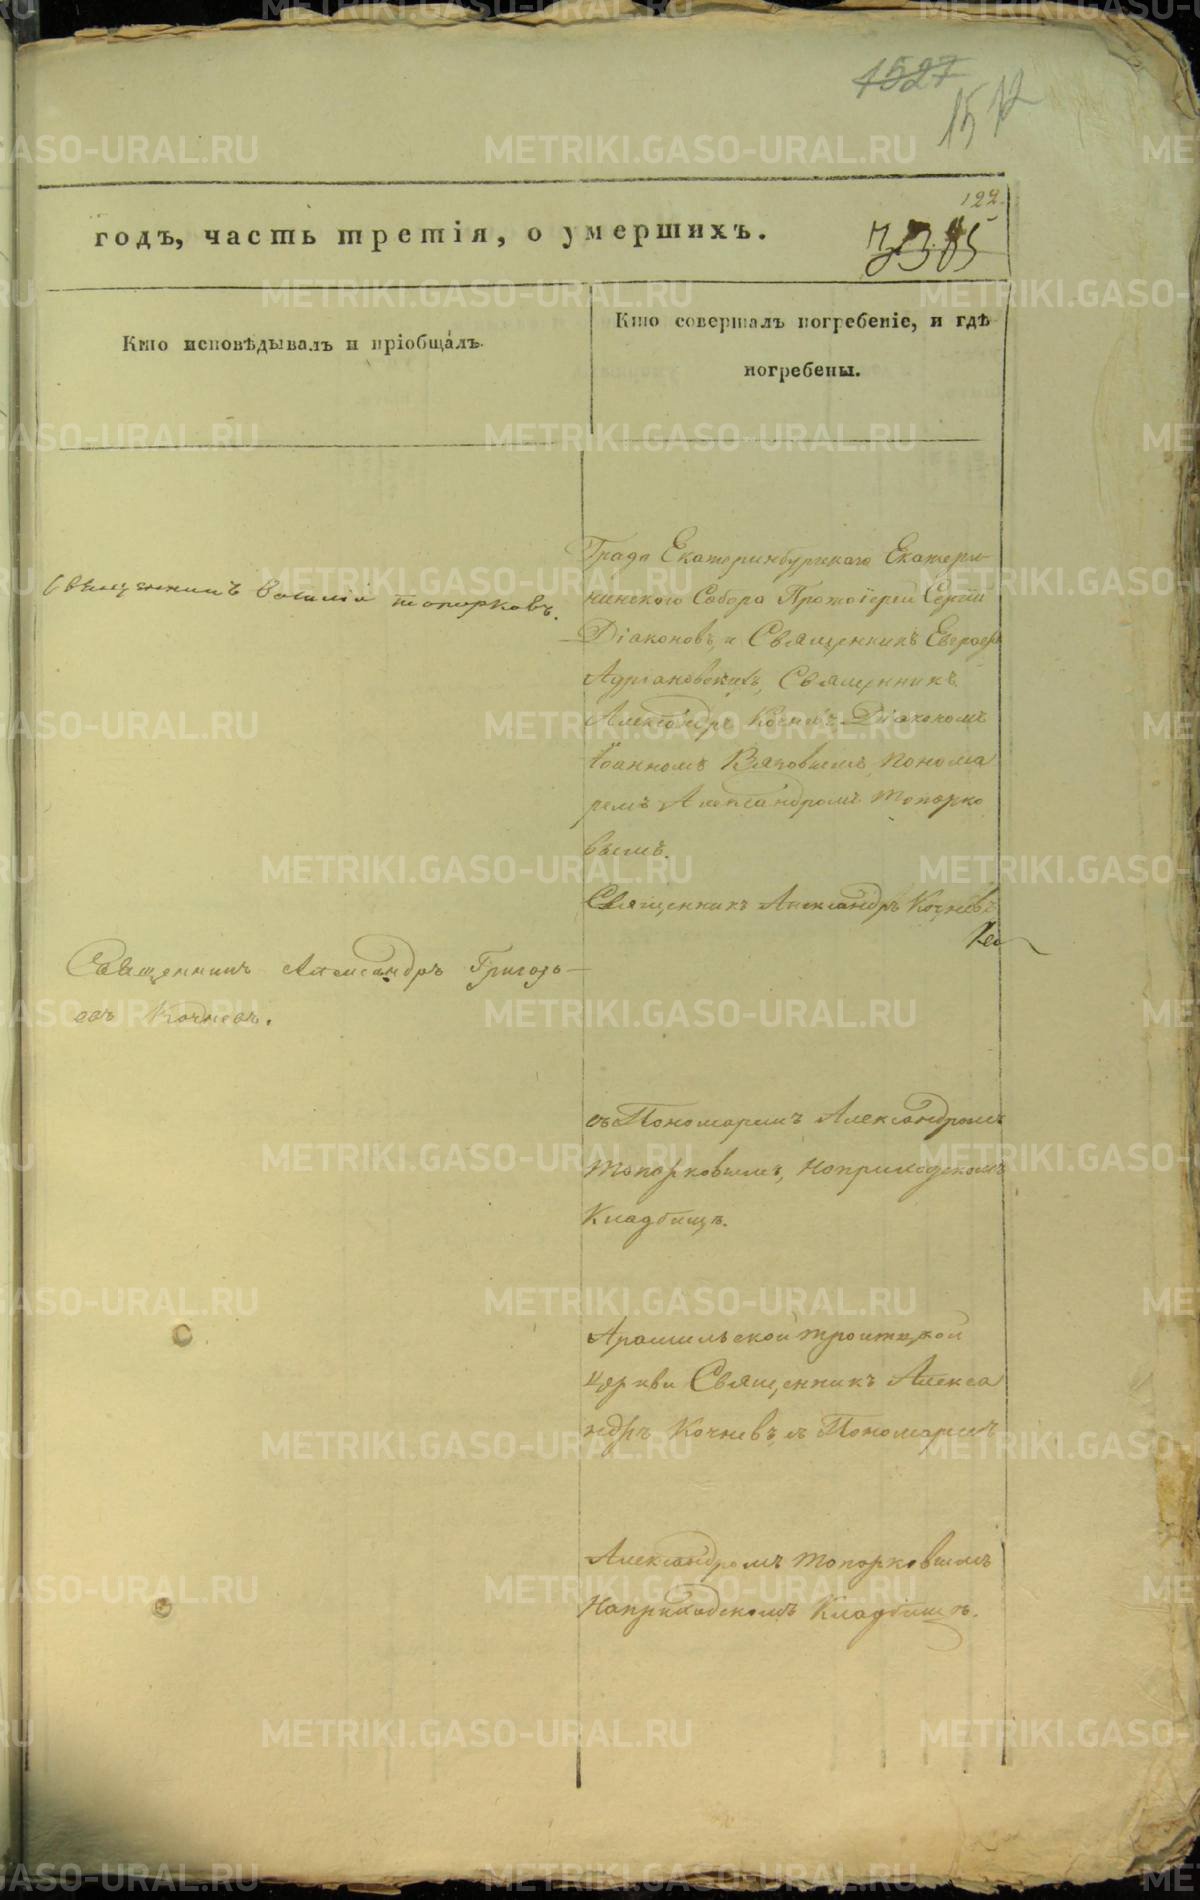 1527
1512
122.
7305
годъ, часть третія, о умершихъ.
Кто исповѣдывалъ и пріобщалъ.
Кто совершалъ погребеніе, и гдѣ
погребены.
Священникъ Василій топорковъ.
Града Екатеринбургскаго Екатери-
нинскаго Собора Протоіерей Сергій
Діаконовъ, и Священникъ
Адріановскій, Священникъ
Александръ Кочневъ Діакономъ
Іоанномъ понома
ремъ Александромъ топорко
вымъ.
Священникъ Александръ Кочневъ
Священникъ Александръ Григорь-
евъ Кочневъ.
съ Пономаремъ Александромъ
топорковымъ, наприходскомъ
Кладбищѣ.
Арамильской троицкой
церкви Священникъ Алекса
ндръ Кочневъ съ Пономаремъ
Александромъ топорковымъ
Наприходскомъ Кладбищѣ.
METRIKI.GASO-URAL.RU